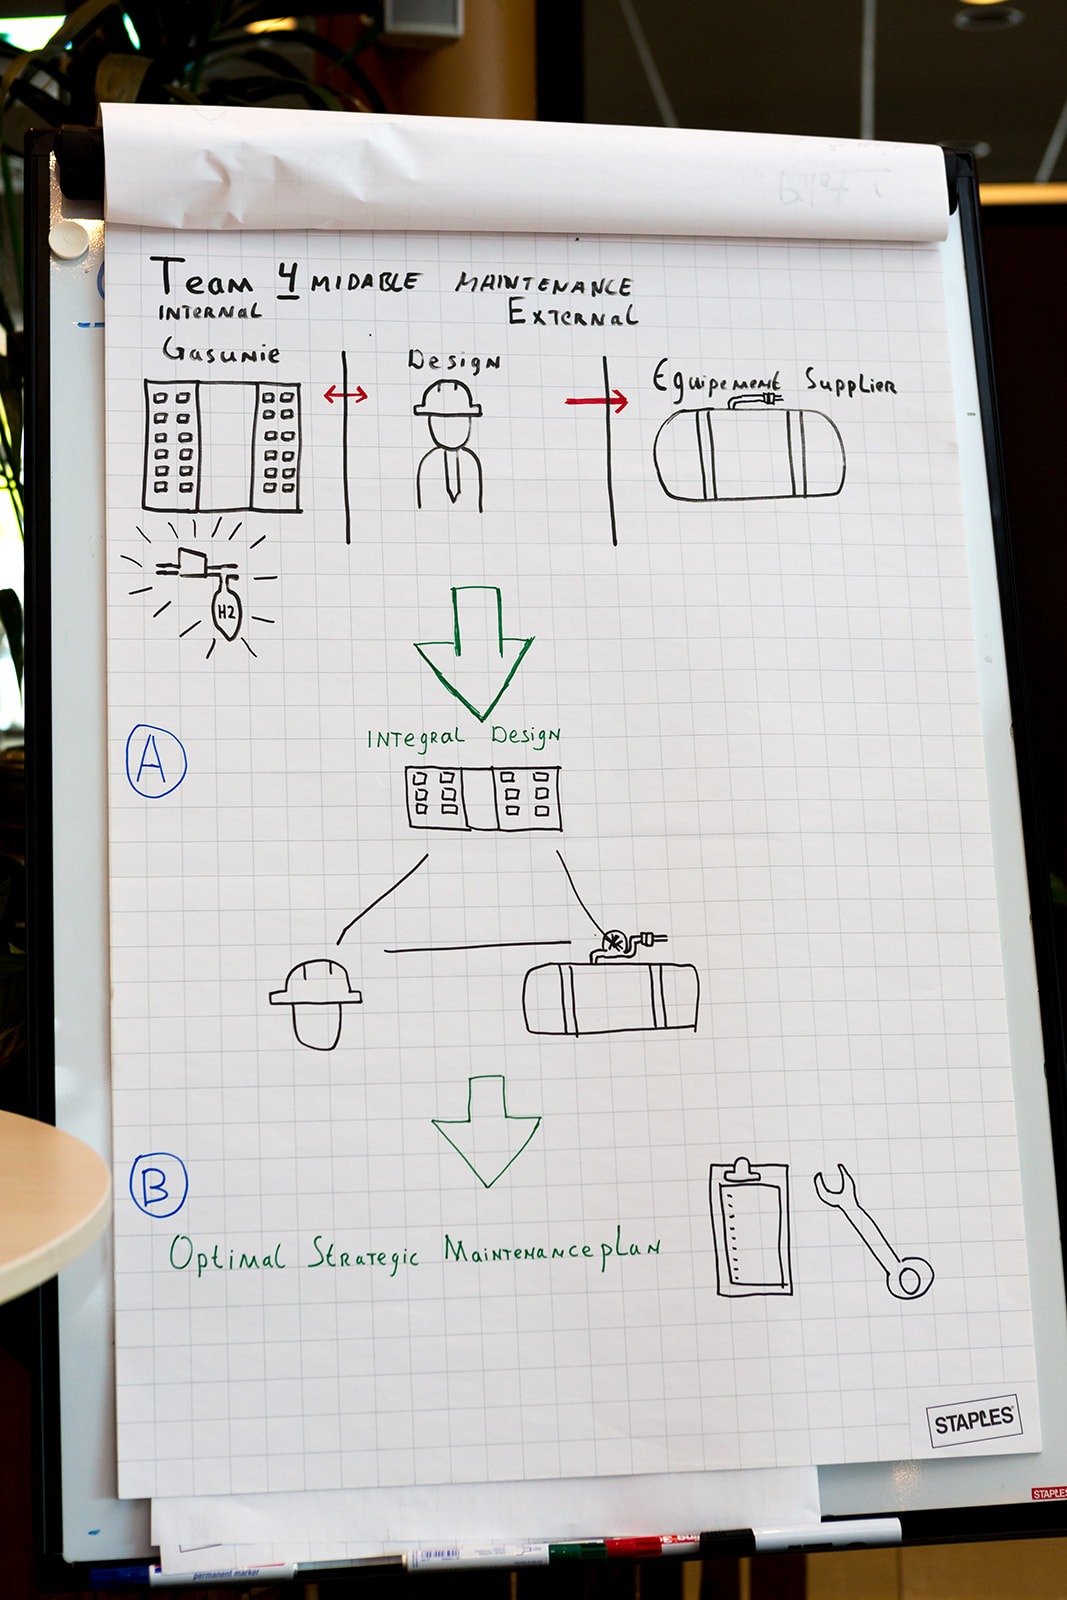 Team 4 MIDABLE MAINTENANCE
INTERNAL External
Gasunie Design Equipement Supplier
H2
INTegral Design
A
B
Optimal Strategic Maintenanceplan
STAPLES
STAPLES
permanent marker